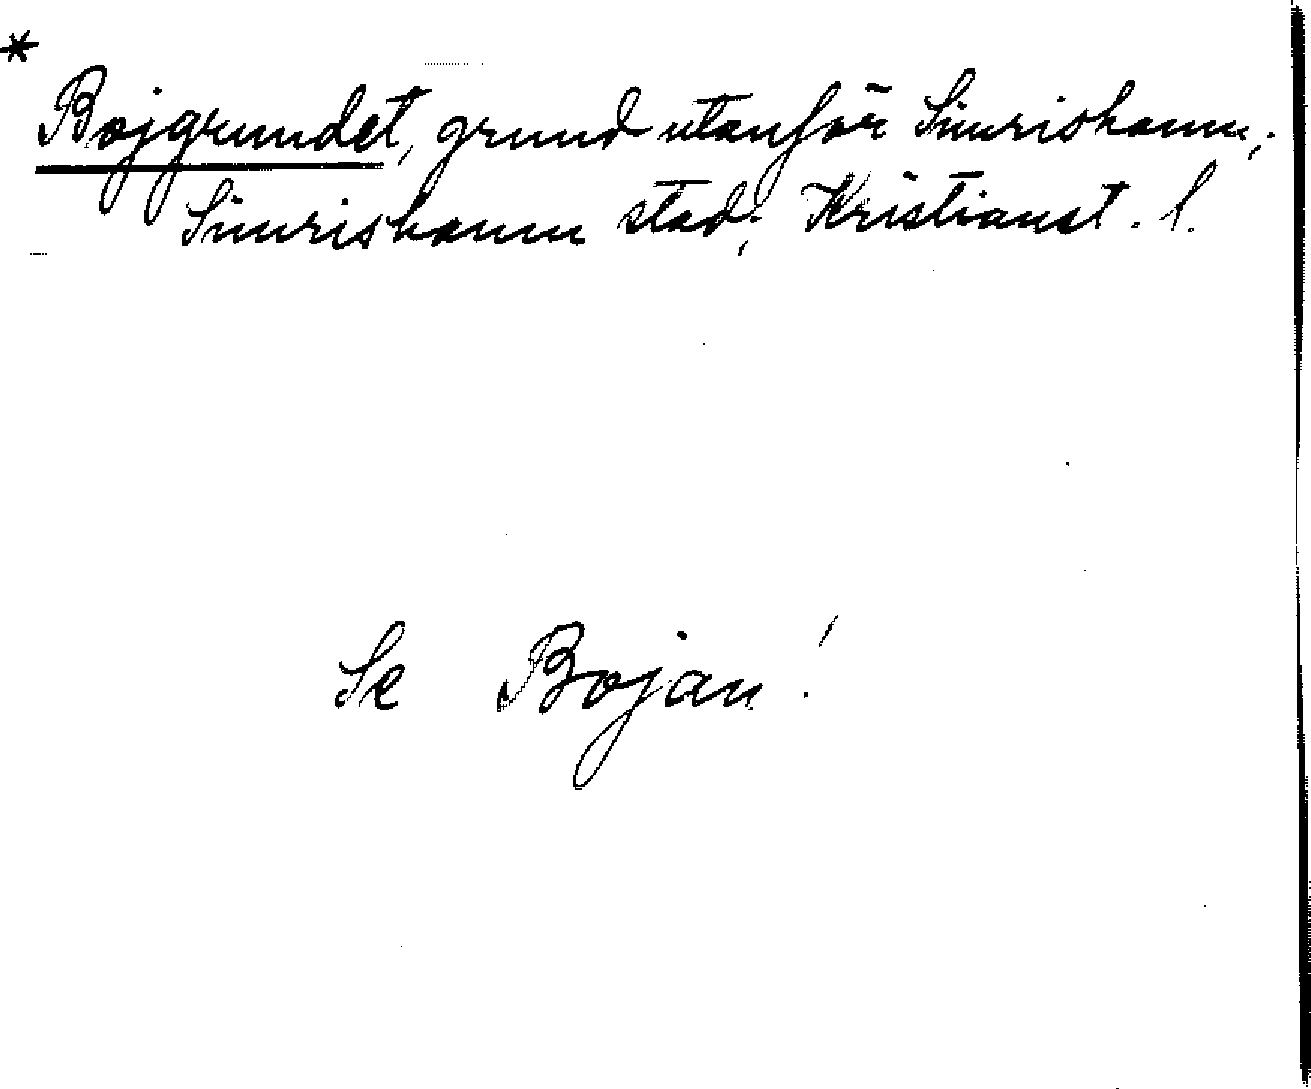 *
Bojgrundet, grund utanför Simrishamn;
Simrishamn stad; Kristianst. l.
Se Bojan!